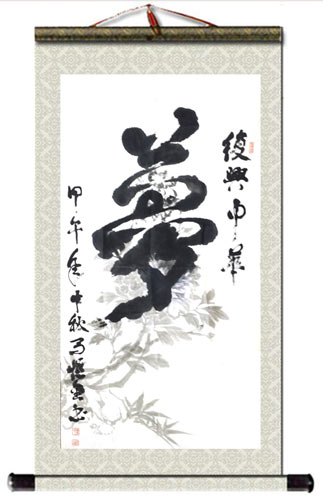 復興中華
夢
甲午年中秋